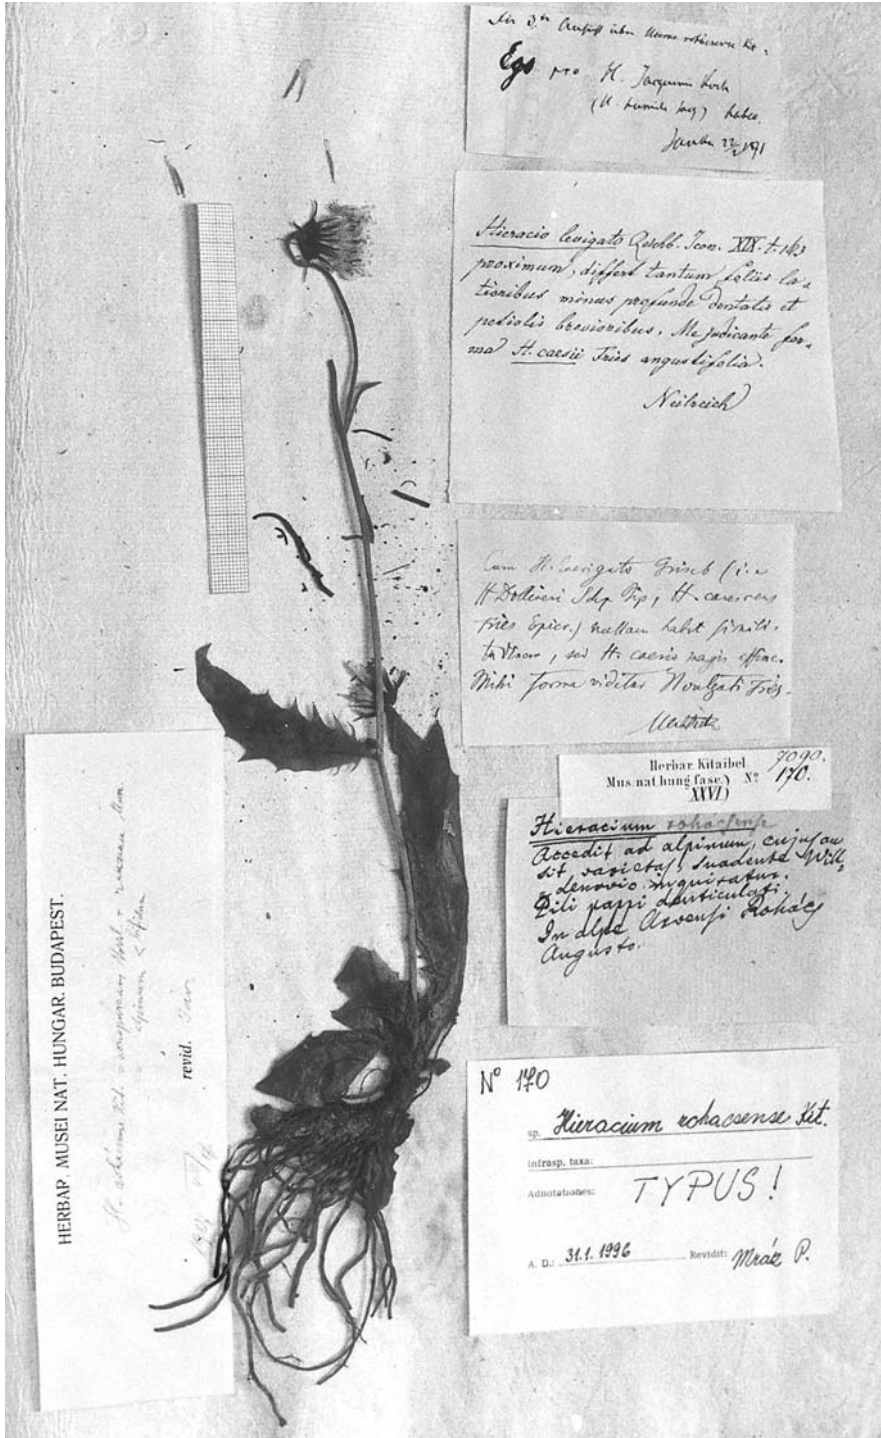 Ego pro H. Jacquini Koch
habeo.
Hieracio levigato Reichb. Icon. XIX. t. 163
proximum, differt tantum foliis la-
tioribus minus profunde dentatis et
petiolis brevioribus. Me judicante for-
ma H. caesii Fries angustifolia.
Neilreich
Cum H. laevigato Griseb (i. e
H Dollineri Schp
Fries Epicr.) nullam habet simili-
tudinem, sed H. caesio magis affine.
Mihi forma videtur H vulgati Fries.
Herbar. Kitaibel
Mus. nat. hung. fasc.) Nº 170.
XXVI)
7090.
Hieracium rohacsense
Accedit ad alpinum, cujus an
sit varietas, suadente Will-
denovio inquiratur.
Pili pappi denticulati.
In alpe Arvensi Rohács
Augusto.
Nº 170
sp. Hieracium rohacsense Kit.
infrasp. taxa:
Adnotationes: TYPUS!
A. D.: 31.1.1996 Revidit: Mráz P.
HERBAR. MUSEI NAT. HUNGAR. BUDAPEST.
alpinum < bifidum
revid.